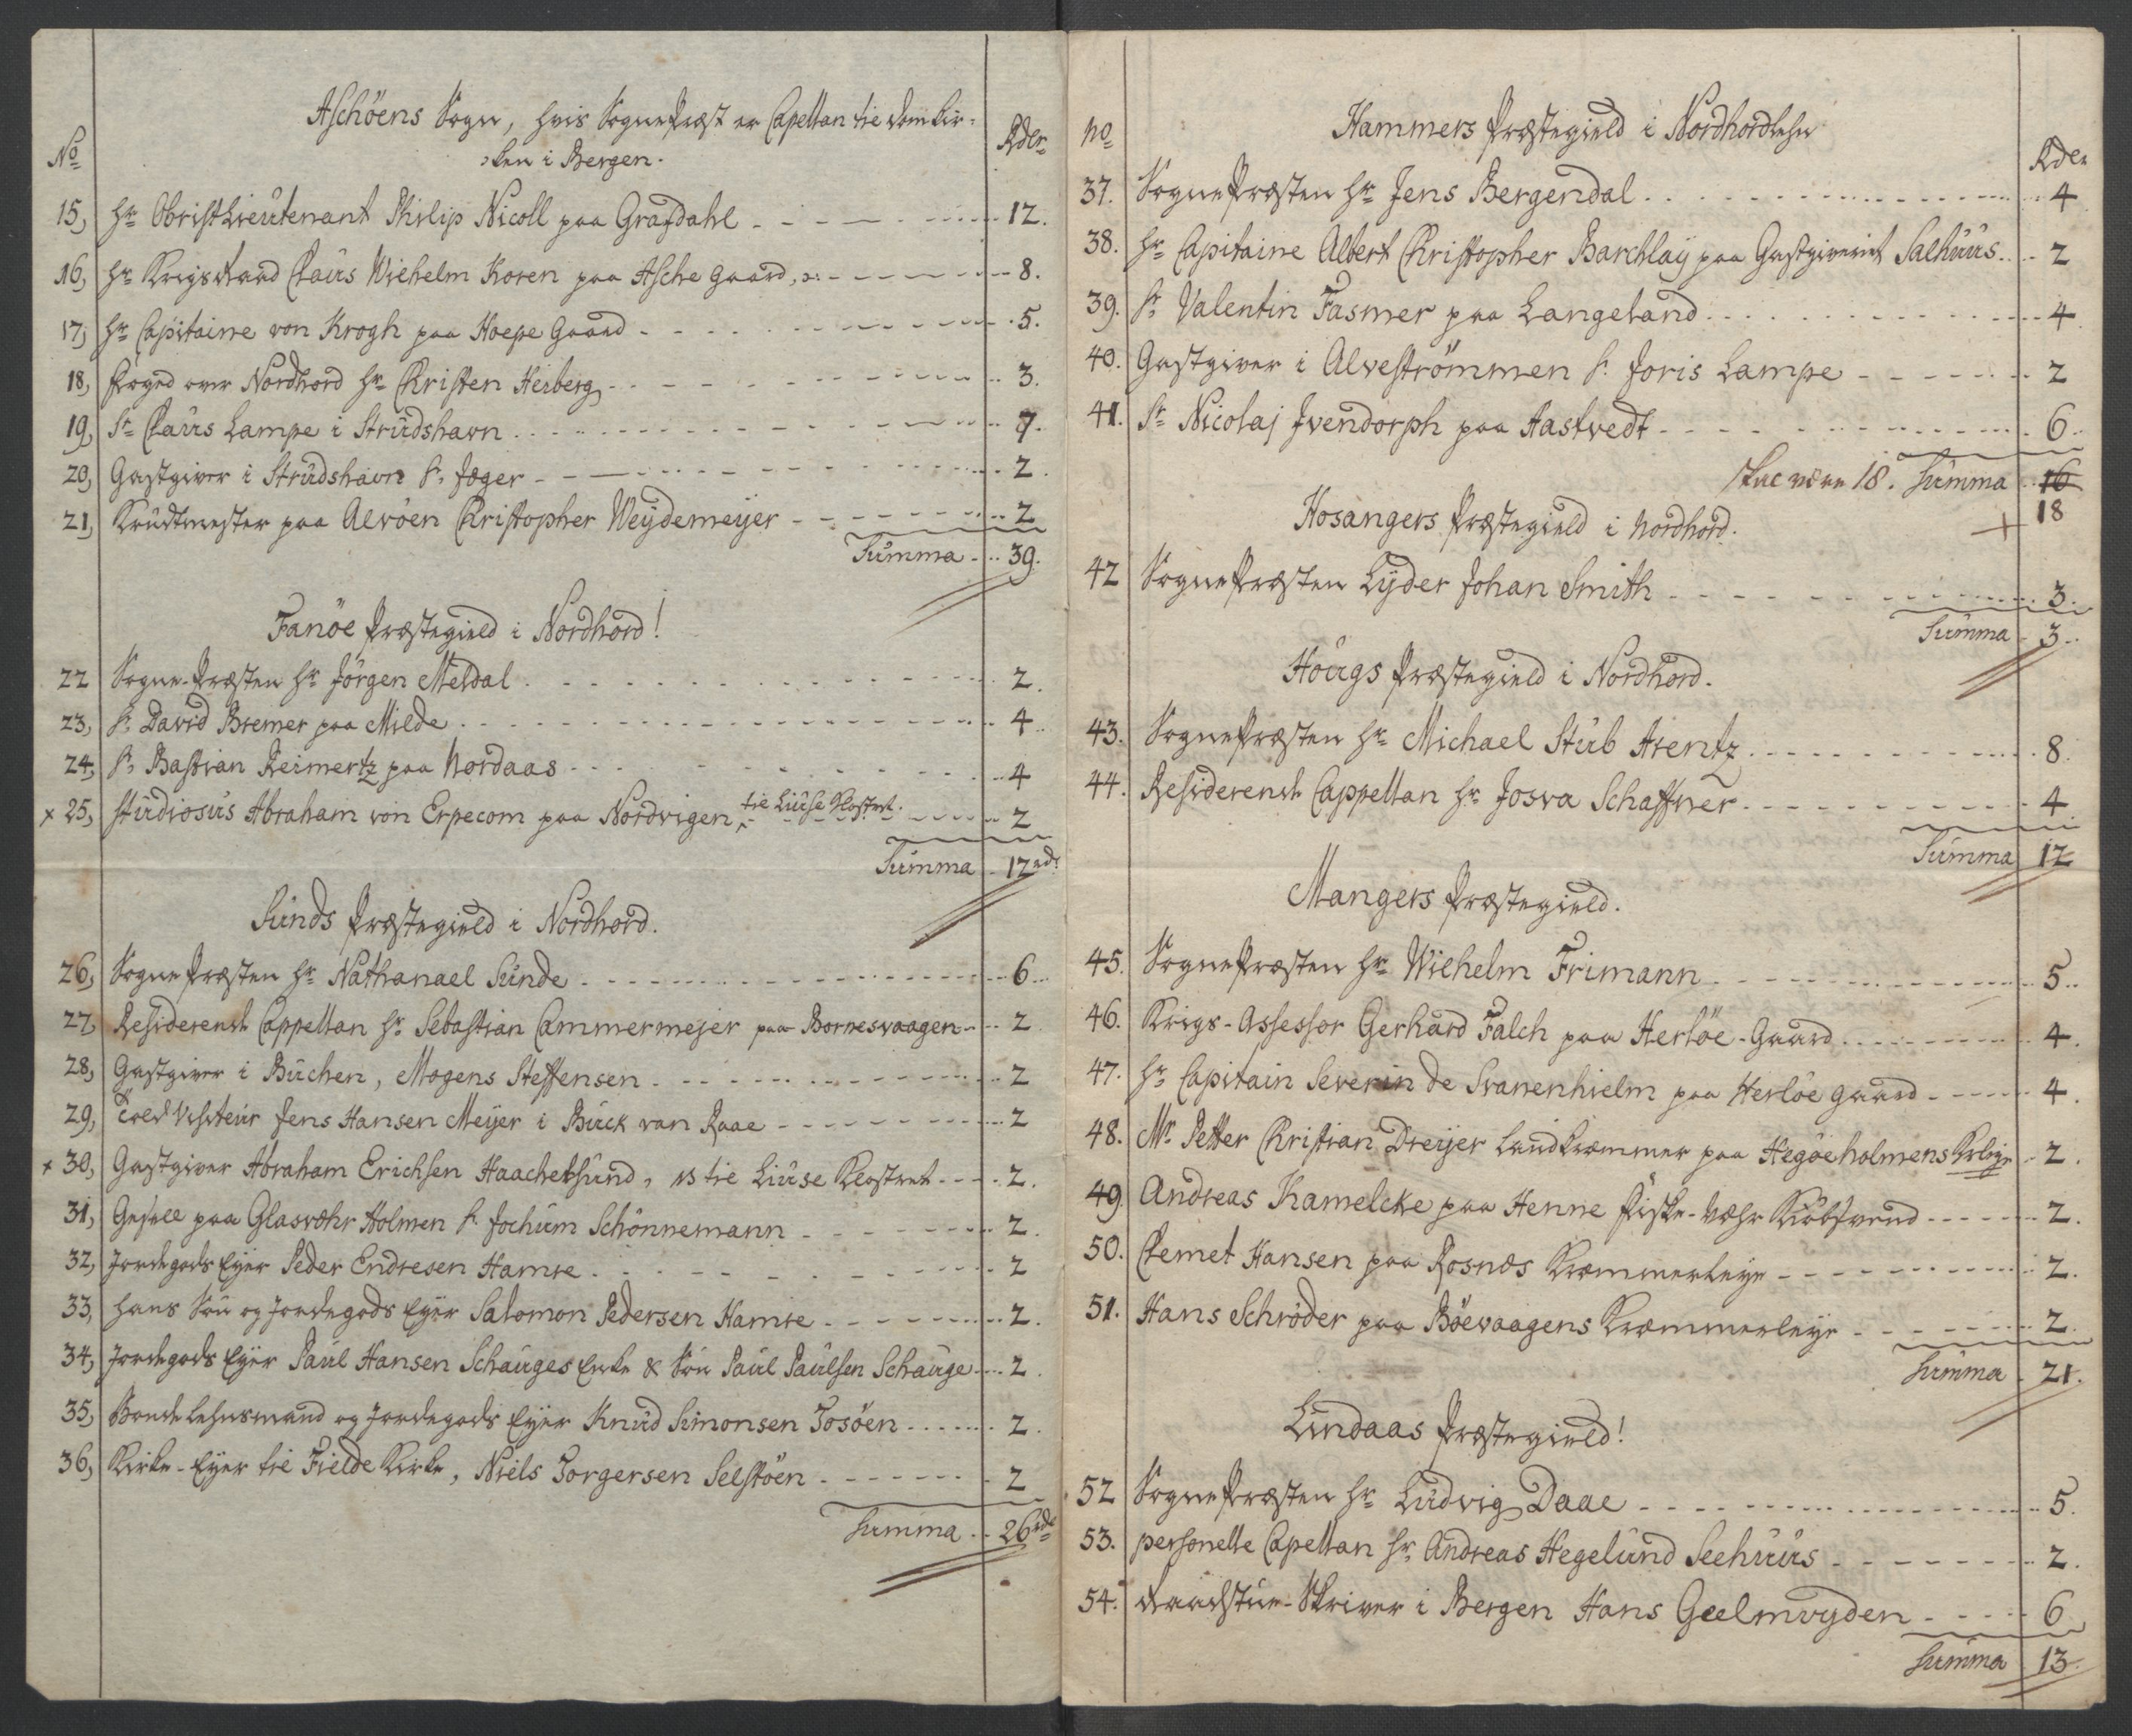 Aschöens Sogn, hvis SognePræst er Capellan til DomKir-
No
-ken i Bergen.
Rdlr
15, Hr ObristLieutenant Philip Nicoll paa Grafdahl 12.
16, Hr KrigsRaad Claus Wilhelm Koren paa Asche Gaard 8.
17, Hr Capitaine von Krogh paa Hoepe Gaard 5.
18, Foged over Nordhord Hr Christen Heiberg 3.
19, Sr Claus Lampe i Strudshavn 7.
20, Gastgiver i Strudshavn Sr Jæger 2.
21, Krudtmester paa Alvöen Christopher Weydemeyer 2
Summa 39.
Fanöe Præstegield i Nordhord!
22 Sogne-Præsten Hr Jörgen Meldal 2.
23, Sr David Bremer paa Milde 4
24, Sr Bastian Reimertz paa Nordaas 4
x 25, Studiosus Abraham von Erpecom paa Nordvigen til Liuse Klostret. 2
Summa 12 rd.
Sunds Præstegield i Nordhord.
26, SognePræsten Hr Nathanael Sunde 6
27, Residerende Cappellan Hr Sebastian Cammermejer paa Bornesvaagen 2
28, Gastgiver i Buchen, Mogens Steffensen 2
29, Told Visiteur Jens Hansen Meyer i Buck van Raae 2
x 30, Gastgiver Abraham Erichsen Haachelsund, NB til Liuse Klostret 2.
31, Gesell paa Glasvæhr Holmen Sr Jochum Schönnemann 2.
32, Jordegods Eyer Peder Endresen Hamre 2
33, Hans Sön og Jordegods Eyer Salomon Pedersen Hamre 2.
34, Jordegods Eyer Paul Hansen Schauges Enke & Sön Paul Paulsen Schauge 2.
35, Bonde Lehnsmand og Jordegods Eyer Knud Simonsen Tosöen 2.
36, Kirke-Eyer til Fielde Kirke, Niels Torgersen Selstöen 2
Summa 26 rdr
Hammers Præstegield i Nordhordlehn
No
Rdlr
37. SognePræsten Hr Jens Bergendal 4
38. Hr Capitaine Albert Christopher Barchlay paa Gastgiveriet Salhuus 2
39. Sr Valentin Fasmer paa Langeland 4
40. Gastgiver i Alveströmmen Sr Joris Lampe 2
41. Sr Nicolaj Jvendorph paa Aastvedt 6.
skal være 18. Summa 16
18
Hosangers Præstegield i Nordhord.
42 SognePræsten Lyder Johan Smith 3.
Summa 3
Hougs Præstegield i Nordhord.
43. SognePræsten Hr Michael Stub Arentz 8.
44. Residerende Cappellan Hr Josva Schaffner 4
Summa 12
Mangers Præstegield.
45. SognePræsten Hr Wilhelm Frimann 5
46. Krigs-Assessor Gerhard Falch paa Herlöe-Gaard 4.
47. Hr Capitain Severin de Svanenhielm paa Herlöe Gaard 4.
48. Mr Petter Christian Dreyer Landkræmmer paa Hegöeholmens Krleje 2.
49. Andreas Kamelcke paa Henne Fiske-Væhr Kiöbsvend 2.
50. Clemet Hansen paa Rosnæs Kræmmerleye 2.
51. Hans Schröder paa Böevaagens Kræmmerleye 2.
Summa 21.
Lindaas Præstegield!
52 SognePræsten Hr Ludvig Daae 5.
53. personelle Capellan Hr Andreas Hegelund Seehuus 2.
54. Raadstue-Skriver i Bergen Hans Geelmuyden 6
Summa 13.